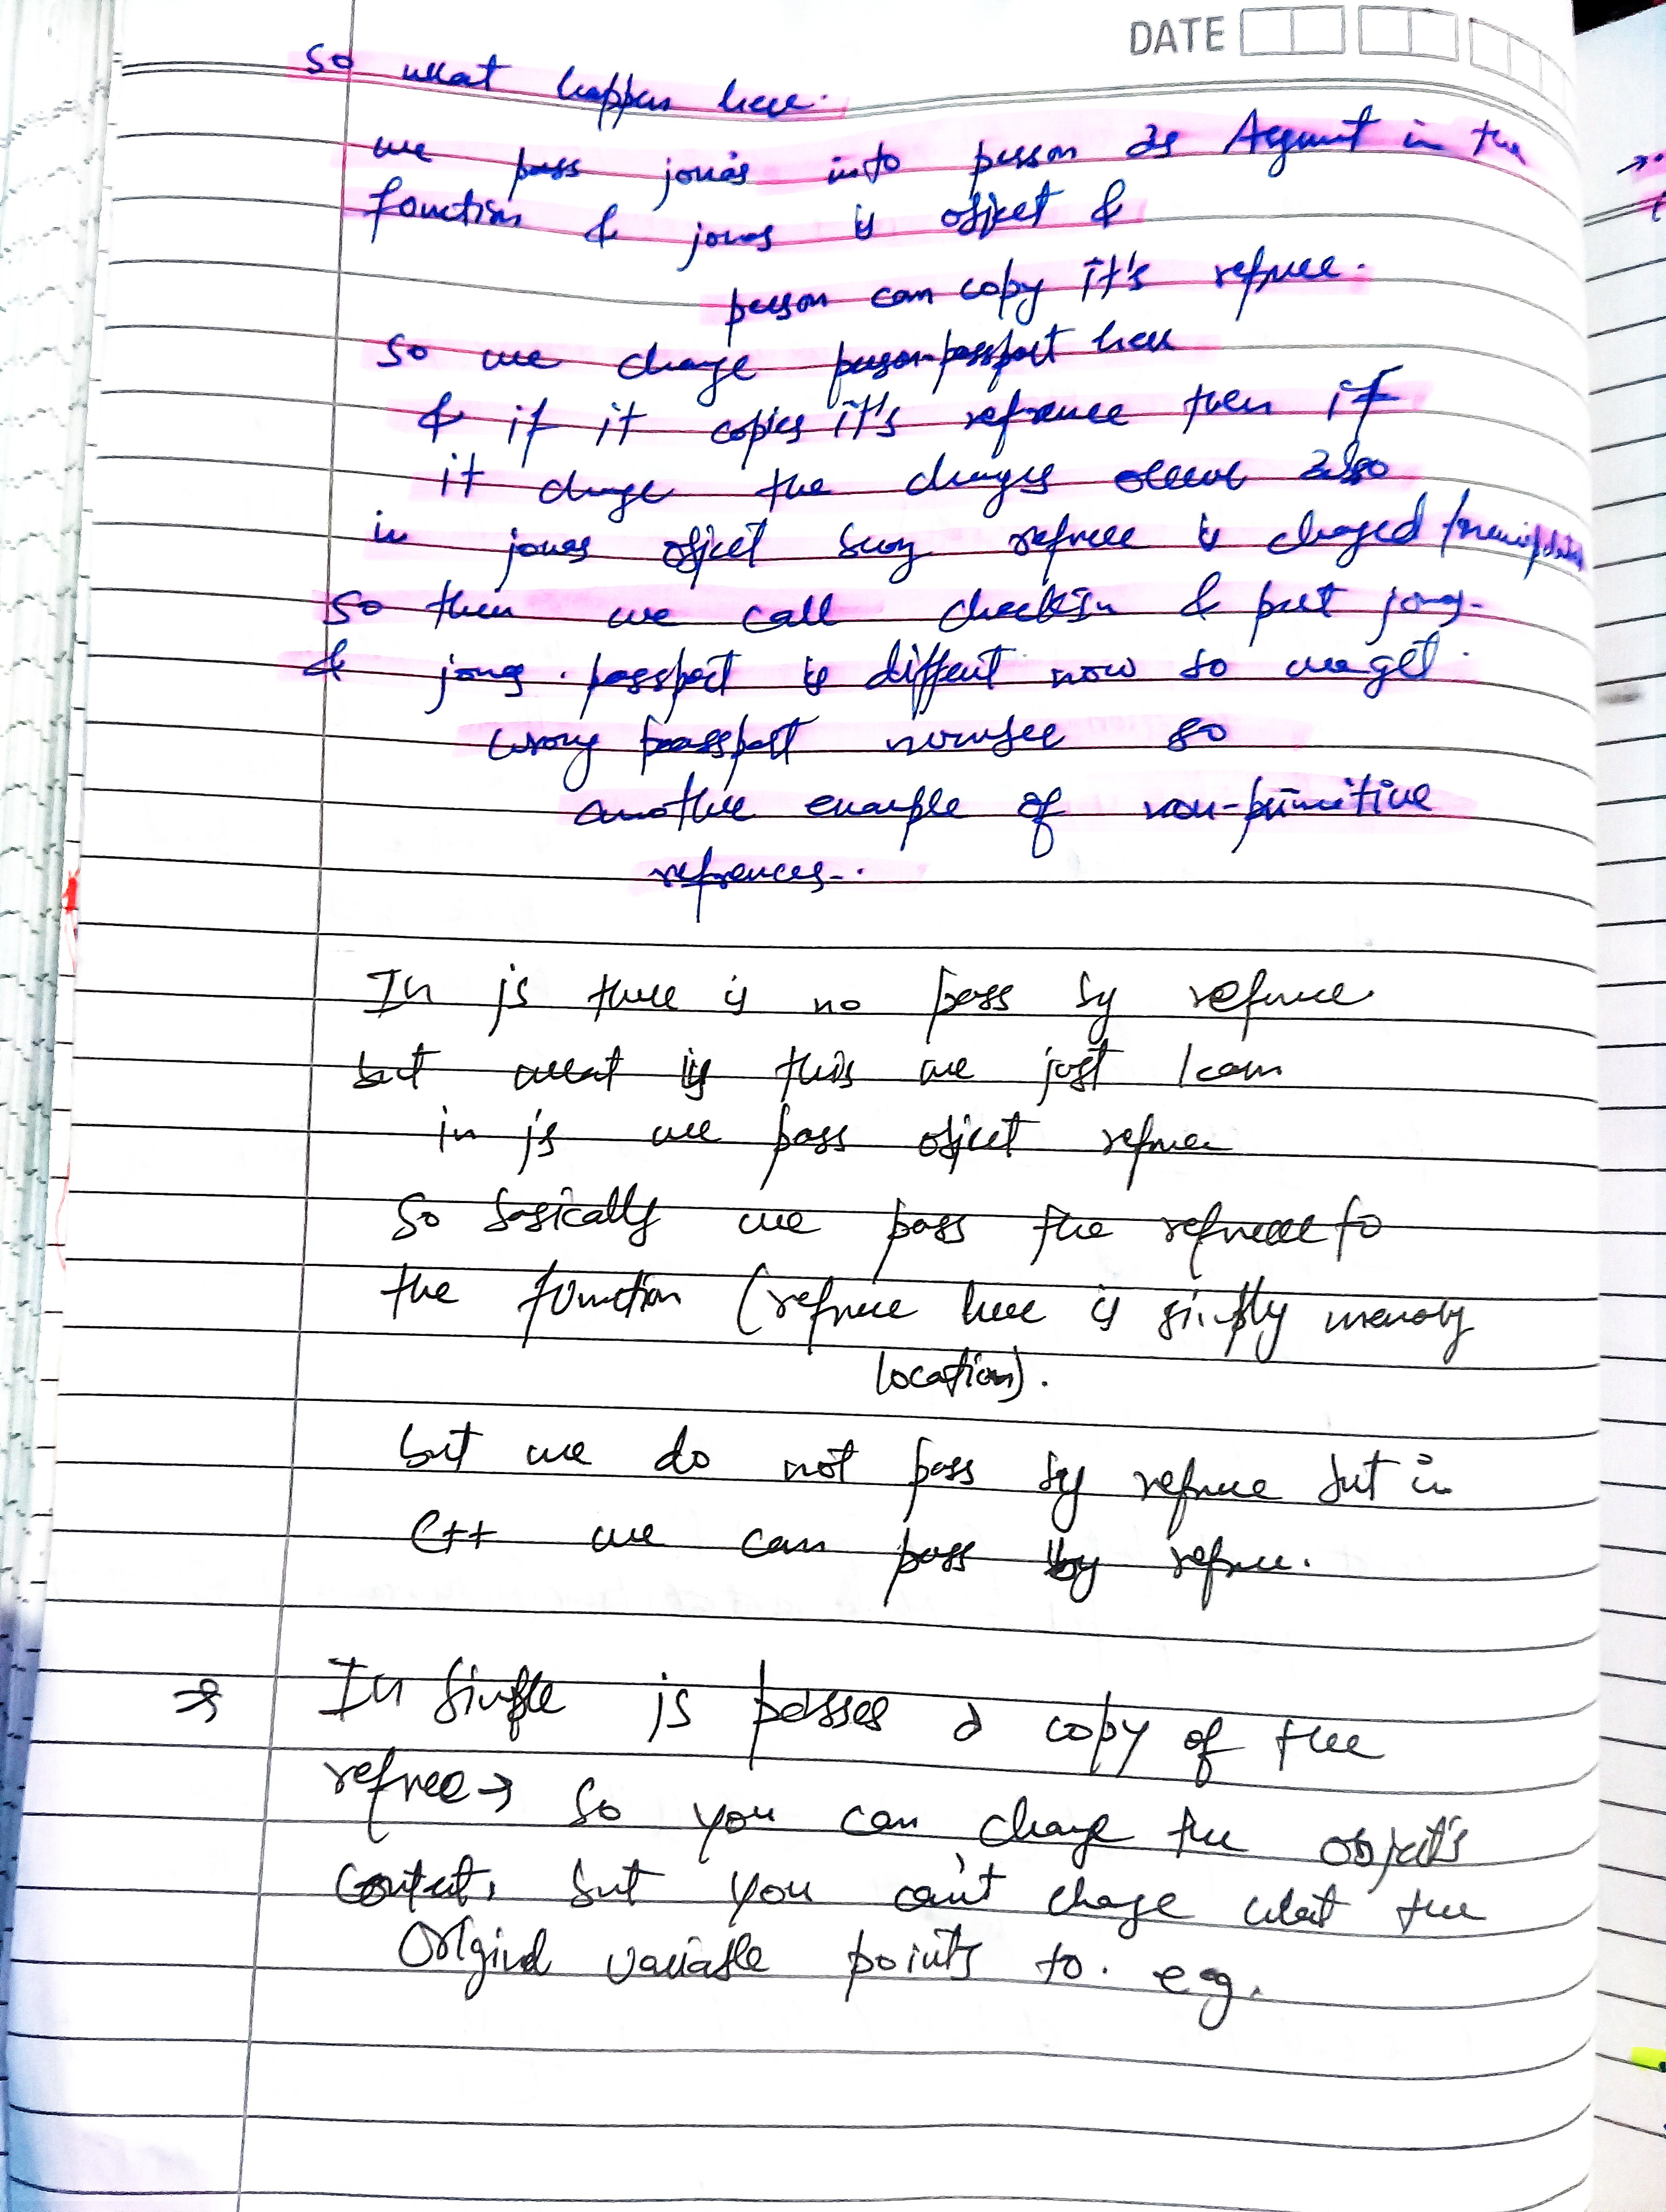 DATE
So what happen here.
we pass jonas into person as Argument in the
function & jonas is object &
person can copy it's refrnce.
So we change person.passport here
& if it copies it's refrence then if
it change the changes occur also
in jonas object bcoz refrnce is changed/manipulated
So then we call checkIn & put jonas.
& jonas.passport is different now so we get
wrong passport number so
another example of non-primitive
refrences..
In js there is no pass by refrnce
but what is this we just learn
in js we pass object refrnce
So basically we pass the refrnce to
the function (refrnce here is simply memory
location).
but we do not pass by refrnce but in
C++ we can pass by refrnce.
⇒ In Simple js passes a copy of the
refrnce → So you can change the object's
content, but you can't change what the
Original variable points to. eg.